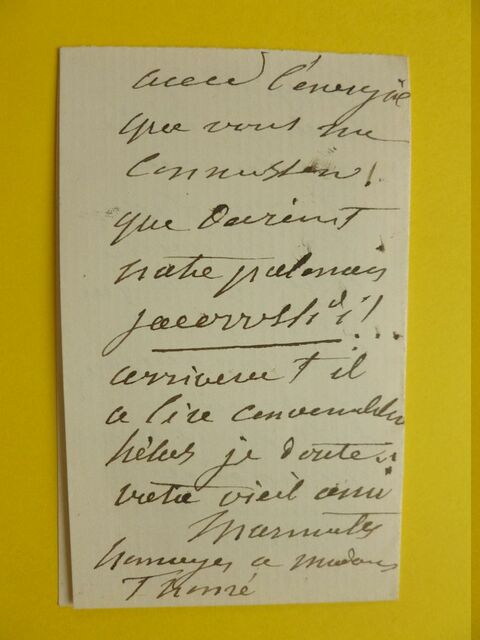 avec l'énergie
que vous me
connaissez!
que devient
notre polonais
arrivera t il
a lire convenablem
hélas je doute..
votre vieil ami
Marmontel
homages a madame
Thomé